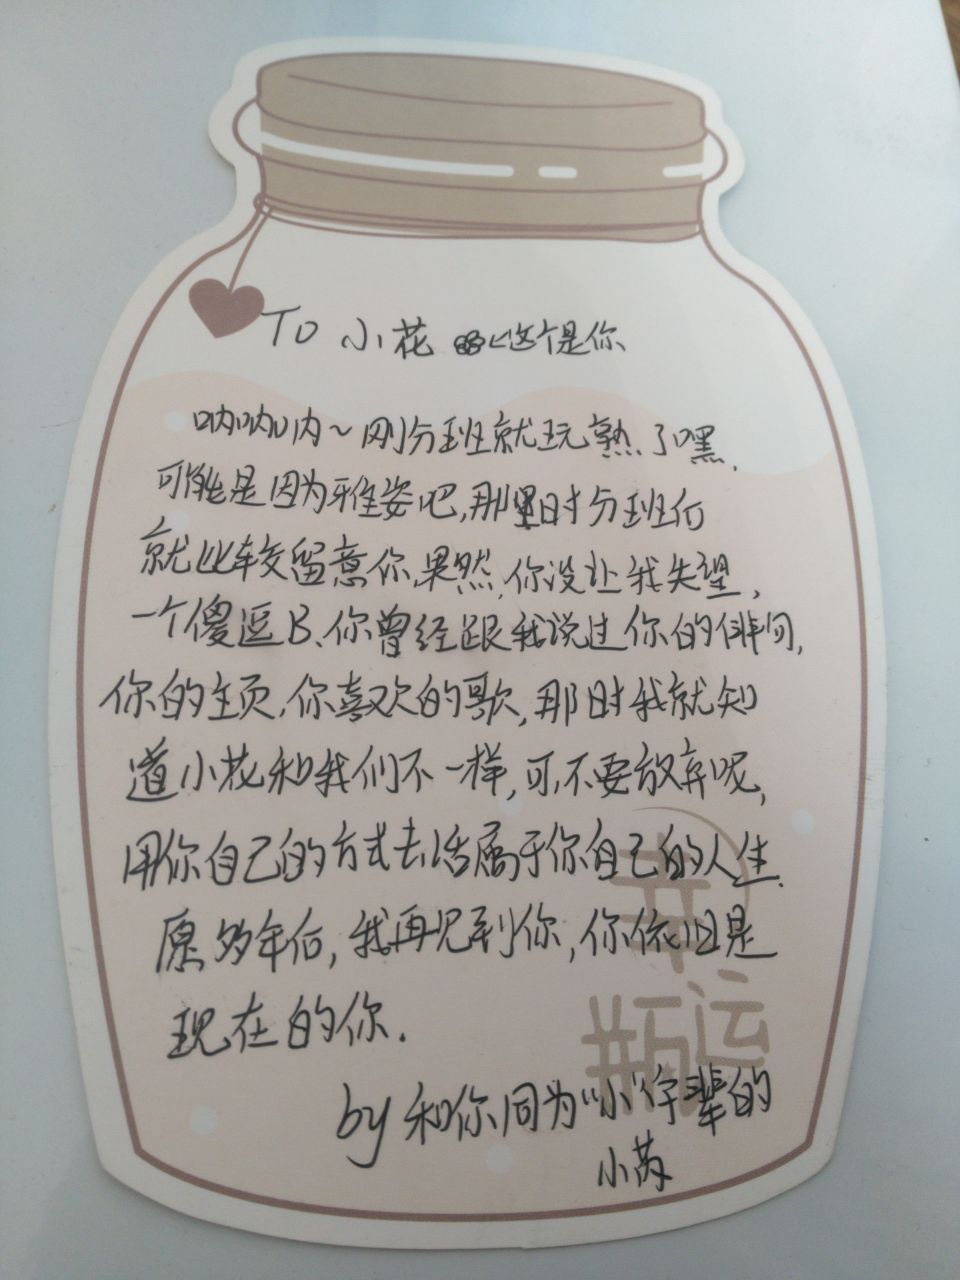 To 小花 这个是你
呐呐呐~刚分班就玩熟了嘿,
可能是因为雅姿吧,那时分班后
就比较留意你,果然,你没让我失望,
一个傻逗B、你曾经跟我说过你的俳句,
你的主页,你喜欢的歌,那时我就知
道小花和我们不一样,可不要放弃呢,
用你自己的方式去活属于你自己的人生.
原多年后,我再见到你,你依旧是
现在的你.
by 和你同为“小”字辈的
小芮
幸运
瓶